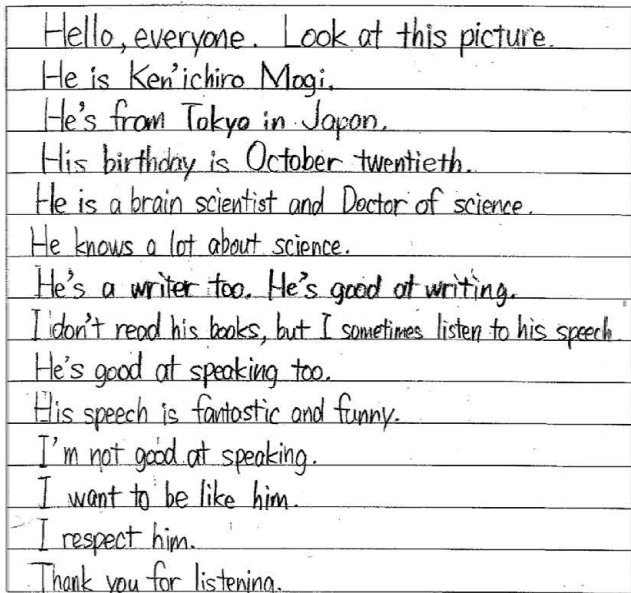 Hello, everyone. Look at this picture.
He is Ken'ichiro Mogi.
He's from Tokyo in Japan.
His birthday is October twentieth.
He is a brain scientist and Doctor of science.
He knows a lot about science.
He's a writer too. He's good at writing.
I don't read his books, but I sometimes listen to his speech.
He's good at speaking too.
His speech is fantastic and funny.
I'm not good at speaking.
I want to be like him.
I respect him.
Thank you for listening.